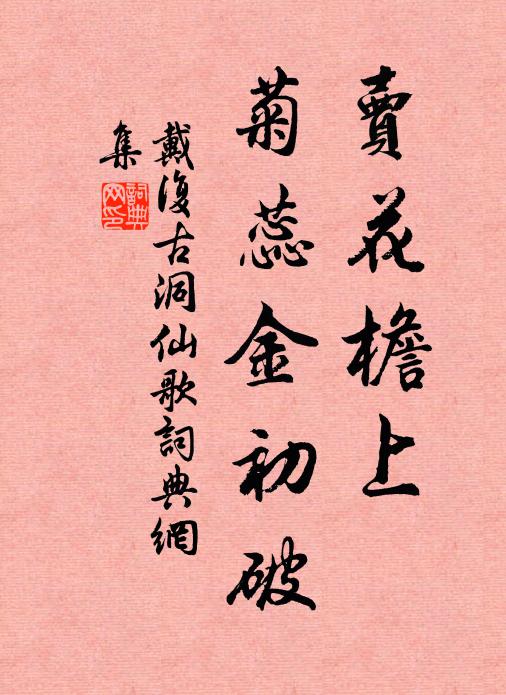 賣花檐上
菊蕊金初破
戴復古洞仙歌詞典網
集
詞典网印